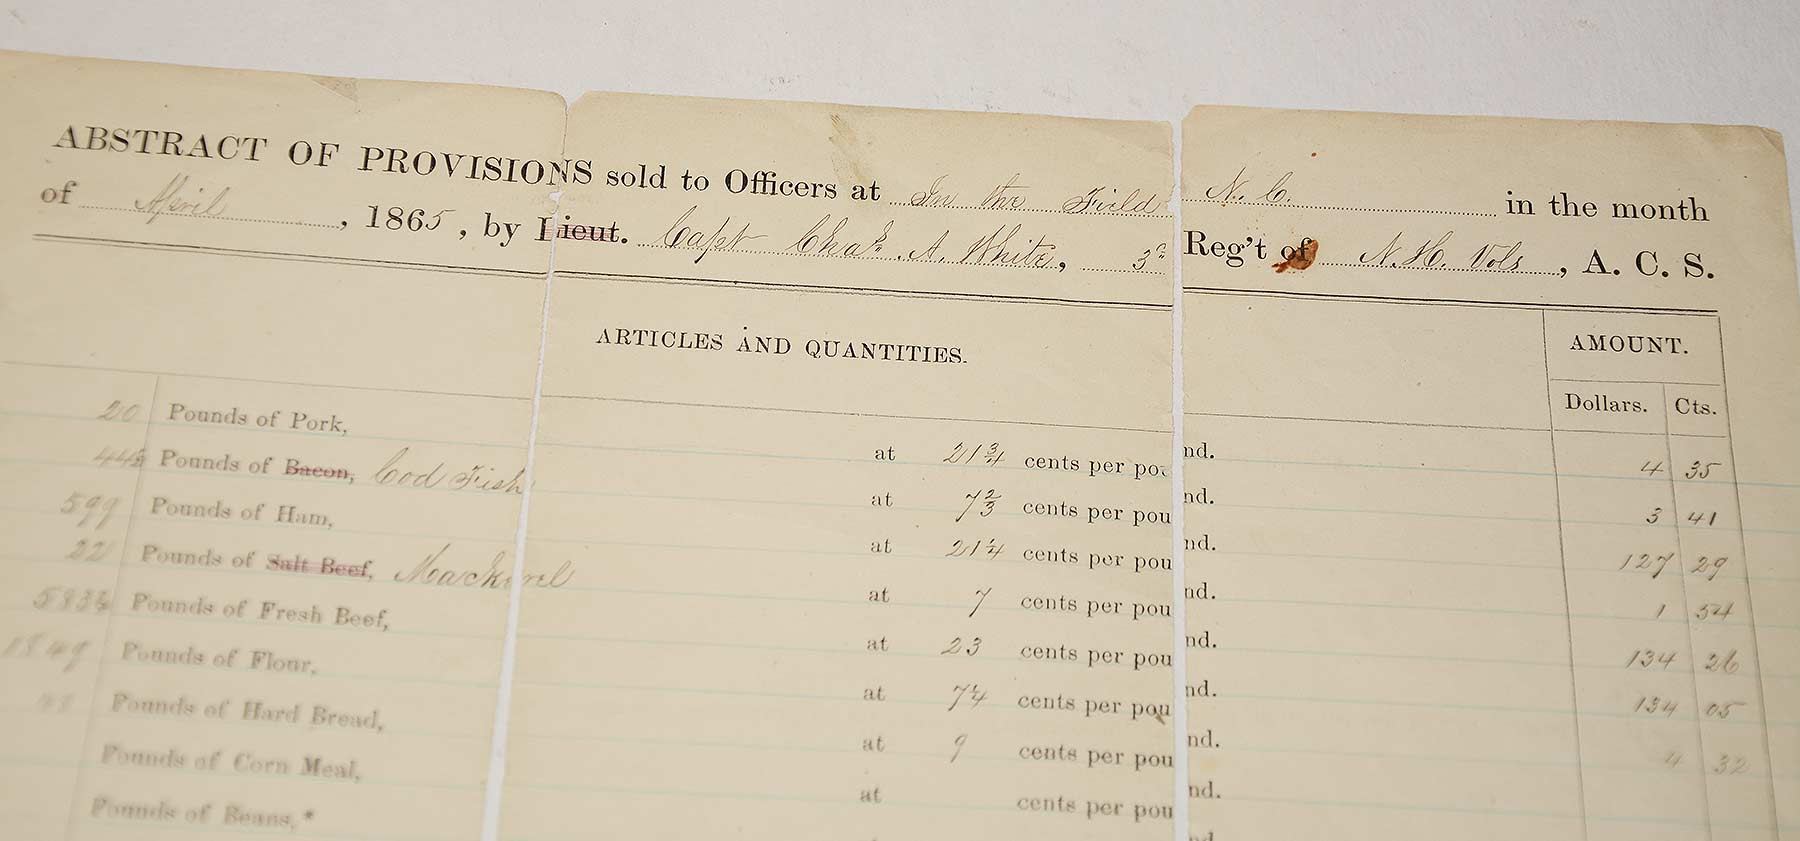 ABSTRACT OF PROVISIONS sold to Officers at In the Field N. C. in the month
of April, 1865, by Lieut. Capt Chas. A. White, 3d Reg't of N. H. Vols, A. C. S.
ARTICLES AND QUANTITIES.
AMOUNT.
Dollars. Cts.
20 Pounds of Pork, at 21 3/4 cents per pound. 4 35
44½ Pounds of Bacon, Cod Fish at 7 2/3 cents per pound. 3 41
599 Pounds of Ham, at 21 1/4 cents per pound. 127 29
22 Pounds of Salt Beef, Mackerel at 7 cents per pound. 1 54
583¾ Pounds of Fresh Beef, at 23 cents per pound. 134 26
1849 Pounds of Flour, at 7 1/4 cents per pound. 134 05
48 Pounds of Hard Bread, at 9 cents per pound. 4 32
Pounds of Corn Meal, at cents per pound.
Pounds of Beans,*